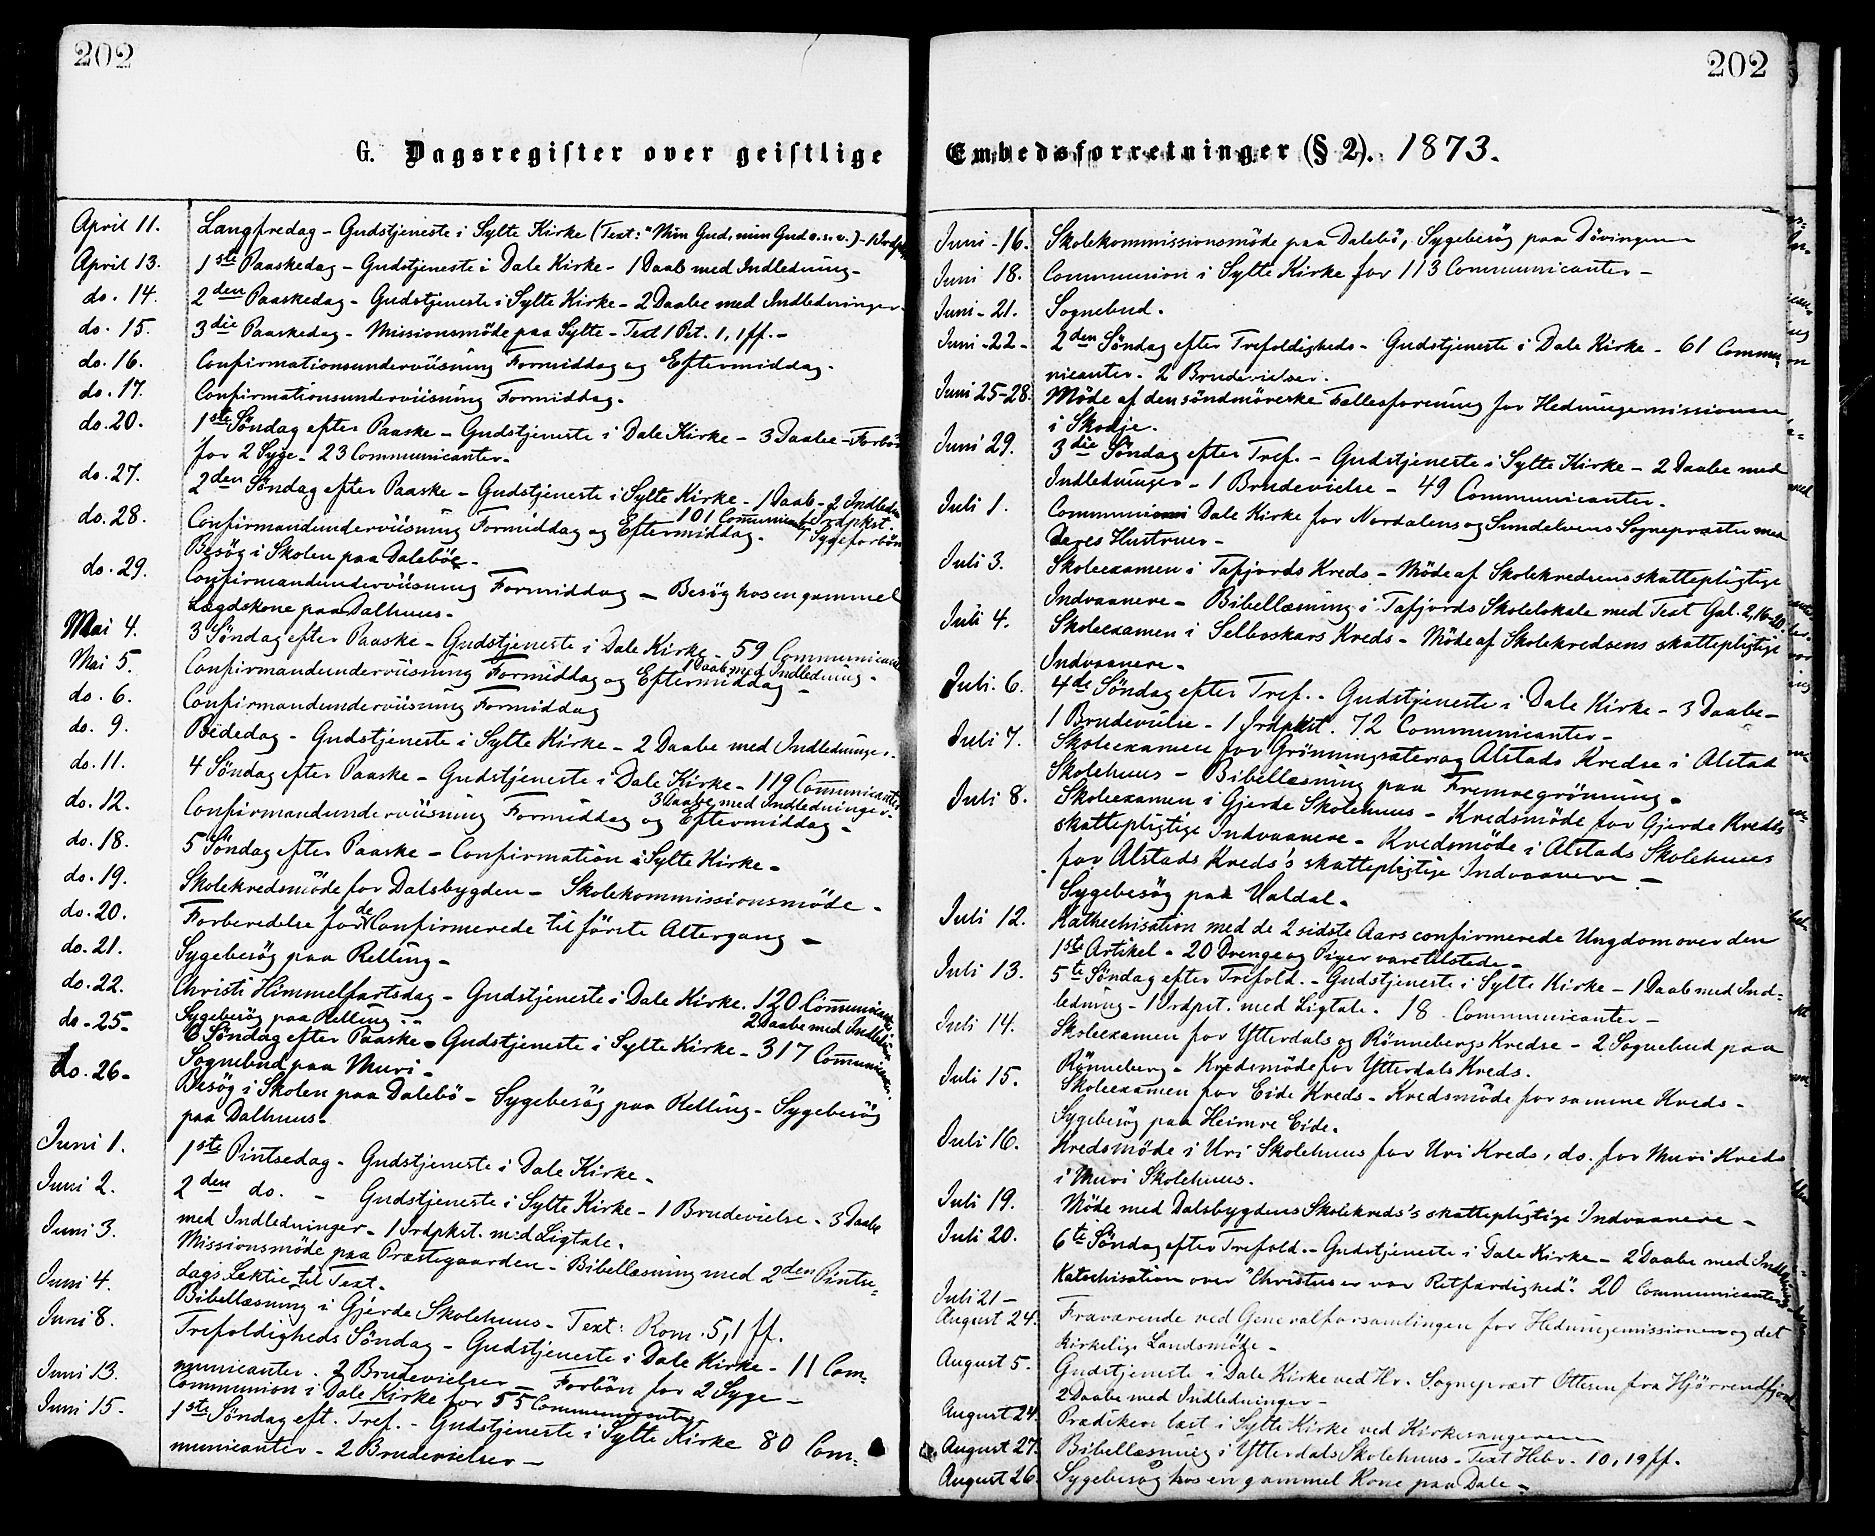 202
G. Dagsregister over geistlige
April 11. Langfredag - Gudstjeneste i Sylte Kirke (Text: "Min Gud, min Gud o.s.v.) - 1 Jrdp
April 13. 1ste Paaskedag - Gudstjeneste i Dale Kirke - 1 Daab med Indledning -
do. 14. 2den Paaskedag - Gudstjeneste i Sylte Kirke - 2 Daabe med Indledninger.
do. 15. 3die Paaskedag - Missionsmöde paa Sylte - Text 1 Pet. 1, 1 ff. -
do. 16. Confirmationsunderviisning Formiddag og Eftermiddag.
do. 17. Confirmationsunderviisning Formiddag.
do. 20. 1ste Söndag efter Paaske - Gudstjeneste i Dale Kirke - 3 Daabe - Forbön
for 2 Syge - 23 Communicanter -
do. 27. 2den Söndag efter Paaske - Gudstjeneste i Sylte Kirke - 1 Daab - 2 Indledn
101 Communicanter Jrdpkst.
do. 28. Confirmandunderviisning Formiddag og Eftermiddag. - 1 Sygeforbön
Besög i Skolen paa Daleböe -
do. 29. Confirmandunderviisning Formiddag - Besög hos en gammel
Lægdskone paa Dalhuus -
Mai 4. 3 Söndag efter Paaske - Gudstjeneste i Dale Kirke - 59 Communicanter
1 Daab med Indledning -
Mai 5. Confirmandunderviisning Formiddag og Eftermiddag -
do. 6. Confirmandunderviisning Formiddag
do. 9. Bededag - Gudstjeneste i Sylte Kirke - 2 Daabe med Indledninger.
do. 11. 4 Söndag efter Paaske - Gudstjeneste i Dale Kirke - 119 Communicanter
3 Daabe med Indledninger -
do. 12. Confirmandunderviisning Formiddag og Eftermiddag -
do. 18. 5 Söndag efter Paaske - Confirmation i Sylte Kirke -
do. 19. Skolekredsmöde for Dalsbygden - Skolekommissionsmöde -
do. 20. Forberedelse for de Confirmerede til förste Altergang -
do. 21. Sygebesög paa Relling -
do. 22. Christi Himmelfartsdag - Gudstjeneste i Dale Kirke. 120 Communicanter
Sygebesög paa Relling. - 2 Daabe med Indledn
do - 25 - 6 Söndag efter Paaske - Gudstjeneste i Sylte Kirke - 317 Communicanter.
Sognebud paa Muri -
do. 26 - Besög i Skolen paa Dalebö - Sygebesög paa Relling - Sygebesög
paa Dalhuus -
Juni 1. 1ste Pintsedag - Gudstjeneste i Dale Kirke -
Juni 2. 2den do. - Gudstjeneste i Sylte Kirke - 1 Brudevielse - 3 Daabe
med Indledninger - 1 Jrdpkst. med Ligtale.
Juni 3. Missionsmöde paa Præstegaarden - Bibellæsning med 2den Pintse-
dags Lektie til Text -
Juni 4. Bibellæsning i Gjerde Skolehuus - Text: Rom. 5, 1 ff.
Juni 8. Trefoldigheds Söndag - Gudstjeneste i Dale Kirke - 11 Com-
municanter. 2 Brudevielser - Forbön for 2 Syge -
Juni 13. Communion i Dale Kirke for 55 Communicanter
Juni 15. 1ste Söndag eft. Tref. - Gudstjeneste i Sylte Kirke 80 Com-
municanter - 2 Brudevielser -
202
Embedsforretninger (§ 2). 1873.
Juni - 16. Skolekommissionsmöde paa Dalebö, Sygebesög paa Dövingene
Juni 18. Communion i Sylte Kirke for 113 Communicanter -
Juni - 21. Sognebud -
Juni - 22 - 2den Söndag efter Trefoldigheds - Gudstjeneste i Dale Kirke - 61 Commu-
nicanter. 2 Brudevielser.
Juni 25-28. Möde af den söndmörerske Fællesforening for Hedningemissionen
i Skodje.
Juni 29. 3die Söndag efter Tref. - Gudstjeneste i Sylte Kirke - 2 Daabe med
Indledninger - 1 Brudevielse - 49 Communicanter.
Juli 1. Communion i Dale Kirke for Nordalens og Sundelvens Sognepræster med
Deres Hustruer -
Juli 3. Skoleexamen i Tafjords Kreds - Möde af Skolekredsens skattepligtige
Indvaanere - Bibellæsning i Tafjords Skolelokale med Text Gal. 2, 16-20.
Juli 4. Skoleexamen i Selboskars Kreds - Möde af Skolekredsens skattepligtige
Indvaanere -
Juli. 6. 4de Söndag efter Tref. - Gudstjeneste i Dale Kirke - 3 Daabe -
1 Brudevielse - 1 Jrdpkst. 72 Communicanter -
Juli 7. Skoleexamen for Grönningsæter og Alstads Kredse i Alstad
Skolehuus - Bibellæsning paa Fremregrönning -
Juli 8. Skoleexamen i Gjerde Skolehuus - Kredsmöde for Gjerde Kreds
skattepligtige Indvaanere - Kredsmöde i Alstads Skolehuus
for Alstads Kreds's skattepligtige Indvaanere -
Sygebesög paa Uoldal -
Juli 12. Kathechisation med de 2 sidste Aars confirmerede Ungdom over den
1ste Artikel - 20 Drenge og Piger vare tilstede -
Juli 13. 5te Söndag efter Trefold. - Gudstjeneste i Sylte Kirke - 1 Daab med Ind-
ledning - 1 Jrdpst. med Ligtale - 18 Communicanter -
Juli 14. Skoleexamen for Ytterdals og Rönnebergs Kredse - 2 Sognebud paa
Rönneberg - Kredsmöde for Ytterdals Kreds.
Juli 15. Skoleexamen for Eide Kreds - Kredsmöde for samme Kreds -
Sygebesög paa Heimre Eide.
Juli 16. Kredsmöde i Uri Skolehuus for Uri Kreds, do. for Muri Kreds
i Muri Skolehuus.
Juli 19. Möde med Dalsbygdens Skolekreds's skattepligtige Indvaanere -
Juli 20. 6te Söndag efter Trefold. - Gudstjeneste i Dale Kirke - 2 Daabe med Indledning
Katechisation over "Christus er vor Retfærdighed". 20 Communicanter
Juli 21 -
August 24. Fraværende ved Generalforsamlingen for Hedningemissionen og det
kirkelige Landsmöde -
August 5. Gudstjeneste i Dale Kirke ved Hr. Sognepræst Ottesen fra Hjörrendfjord
2 Daabe med Indledninger -
August 24. Prædiken læst i Sylte Kirke ved Kirkesangeren
August 27. Bibellæsning i Ytterdals Skolehuus - Text Hebr. 10, 19 ff.
August 26. Sygebesög hos en gammel Kone paa Dale -